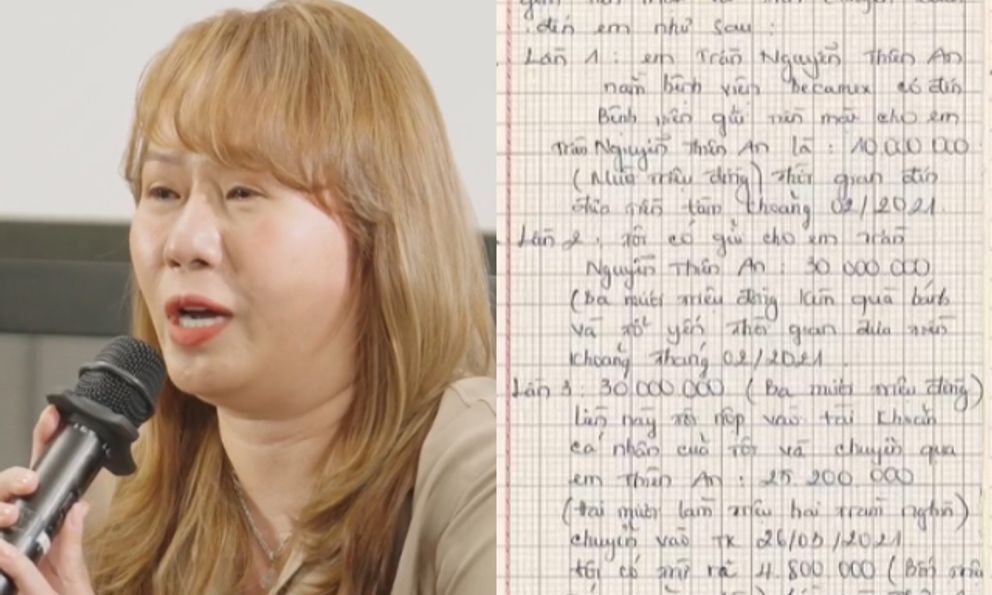 đến em như sau :
Lần 1 : em Trần Nguyễn Thiên An
nằm bệnh viện becamex có đến
Bệnh viện gửi tiền mặt cho em
Trần Nguyễn Thiên An là : 10.000 000
(Mười triệu đồng) thời gian đến
đưa tiền tầm khoảng 02/2021.
Lần 2 : tôi có gửi cho em Trần
Nguyễn Thiên An : 30 000.000
(Ba mươi triệu đồng
và thời gian đưa tiền
khoảng tháng 02/2021
Lần 3 : 30.000.000 (Ba mươi triệu đồng)
Lần này tôi nộp vào tài khoản
cá nhân của tôi và chuyển qua
em Thiên An : 25 200 000
(hai mươi lăm triệu hai trăm nghìn)
chuyển vào TK 26/05/2021.
tôi có trừ ra 4.800 000 (Bốn triệu